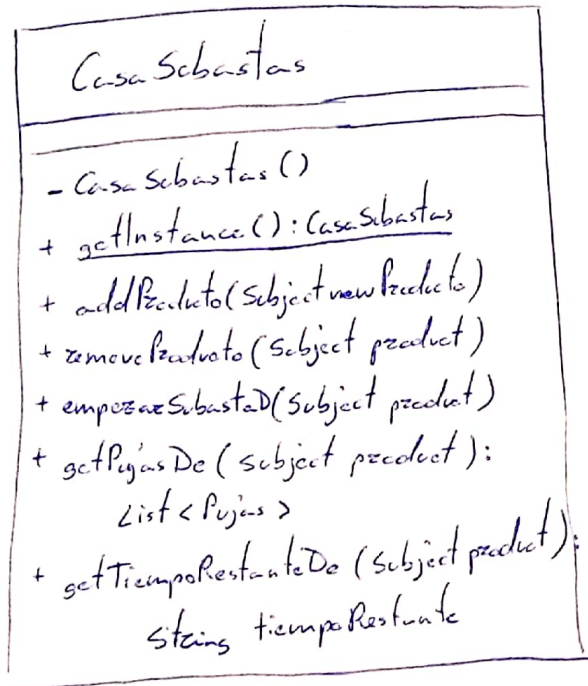 CasaSubastas
- CasaSubastas()
+ getInstance(): CasaSubastas
+ addProducto(Subject newProducto)
+ removeProducto(Subject product)
+ empezarSubastaD(Subject product)
+ getPujasDe(Subject product):
List<Pujas>
+ getTiempoRestanteDe(Subject product):
String tiempoRestante